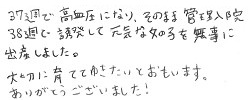 37週で高血圧になり、そのまま管理入院
38週で誘発して元気な女の子を無事に
出産しました。
大切に育ててゆきたいとおもいます。
ありがとうございました!